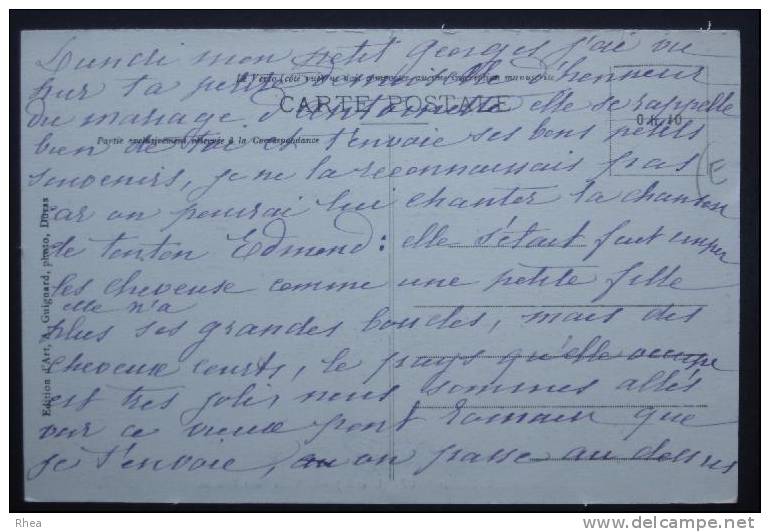 Lundi mon petit Georges j'ai vu
sur ta petite demoiselle d'honneur
CARTE POSTALE
du mariage d'Antoinette elle se rappelle
bien de toi et t'envoie ses bons petits
Partie exclusivement réservée à la Correspondance
souvenirs, je ne la reconnaissais pas
car on pourrai lui chanter la chanson
de tonton Edmond : elle s'était fait couper
les cheveuse comme une petite fille
elle n'a
plus ses grandes boucles, mais des
cheveux courts, le pays qu'elle occupe
est tres joli, nous sommes allés
voir ce vieux pont romain que
je t'envoie, au on passe au dessus
Edition d'Art, Guignard, photo, Duras
E
Rhea
©delcampe.net